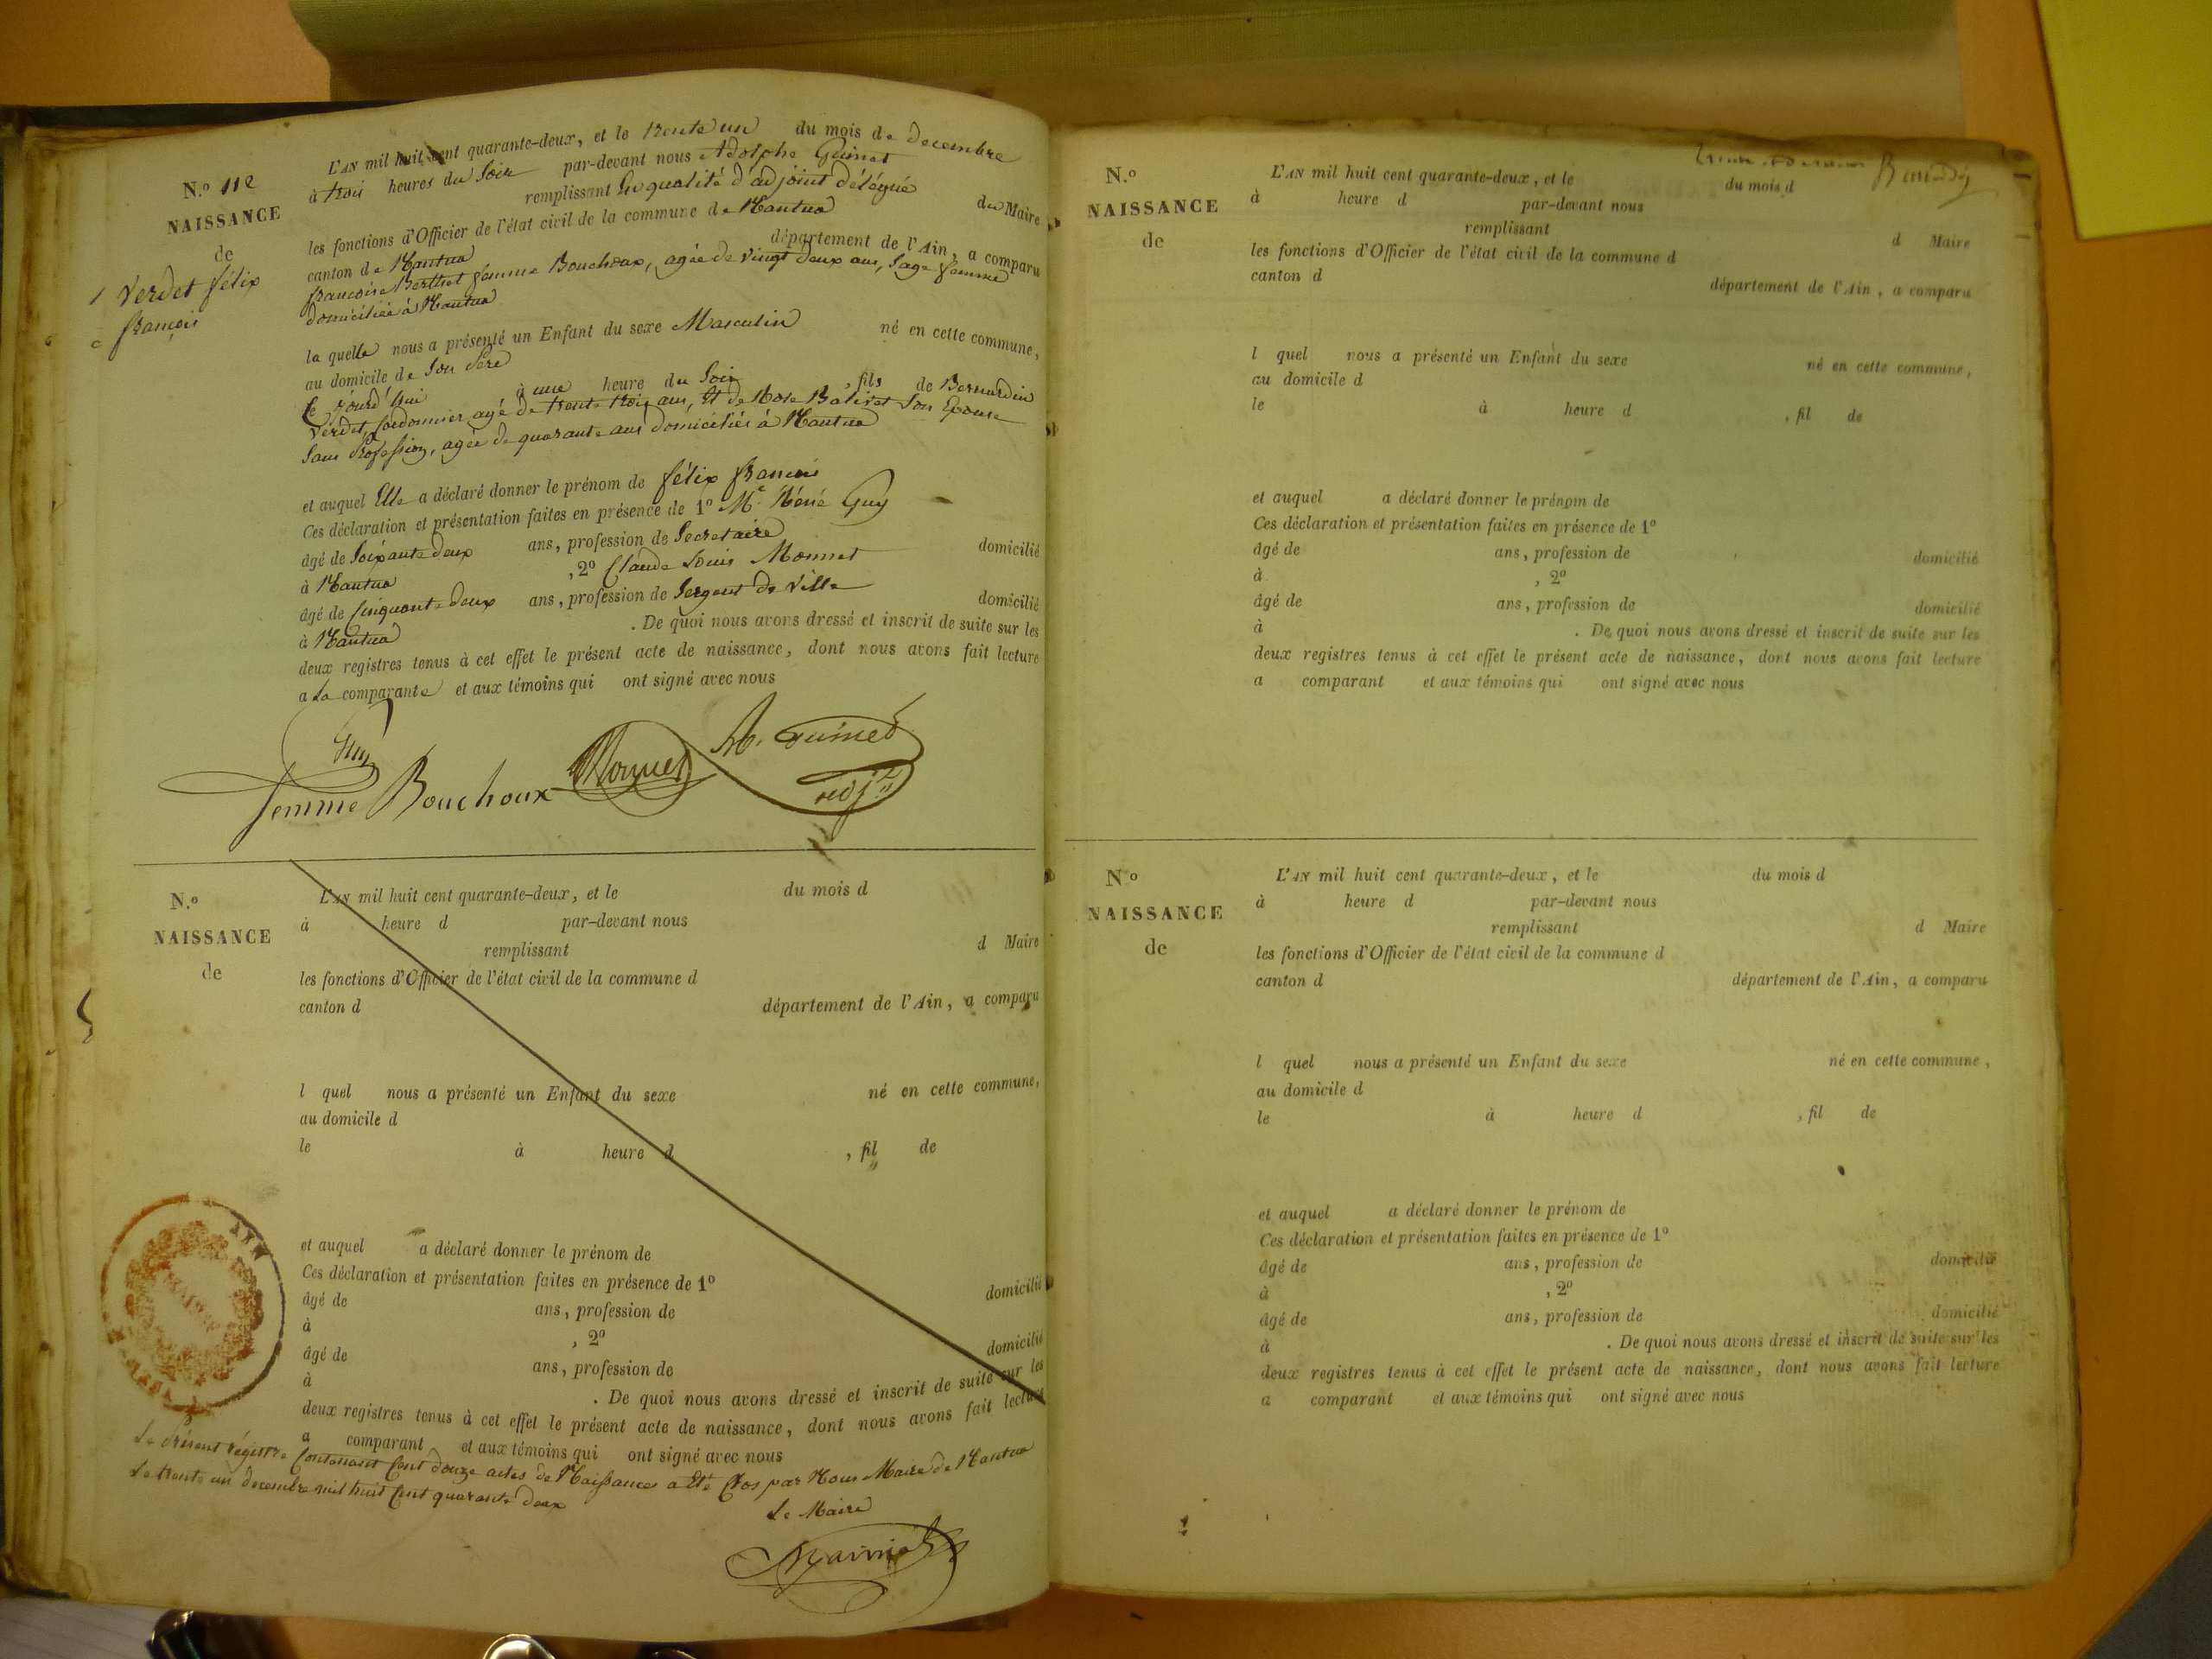 N.º 112
NAISSANCE
de
Verdet félix
françois
L'AN mil huit cent quarante-deux, et le trente un du mois de decembre
à trois heures du Soir par-devant nous Adolphe Guinet
remplissant En qualité d'adjoint délégué du Maire
les fonctions d'Officier de l'état civil de la commune de Nantua
canton de Nantua département de l'Ain, a comparu
francoise Berthet femme Bouchoux, agée de vingt deux ans, Sage femme
domiciliée à Nantua
la quelle nous a présenté un Enfant du sexe Masculin né en cette commune,
au domicile de Son Père
Ce jourd'hui à une heure du Soir, fils de Bernardin
Verdet, Cordonnier agé de trente trois ans, Et de Rose Son Epouse
Sans Profession, agée de quarante ans domiciliés à Nantua
et auquel Elle a déclaré donner le prénom de félix francois
Ces déclaration et présentation faites en présence de 1º Mr. Réné Guy
âgé de Soixante deux ans, profession de Secretaire domicilié
à Nantua, 2º Claude Louis Monnet
âgé de Cinquante deux ans, profession de Sergent de Ville domicilié
à Nantua. De quoi nous avons dressé et inscrit de suite sur les
deux registres tenus à cet effet le présent acte de naissance, dont nous avons fait lecture
a La comparante et aux témoins qui ont signé avec nous
Guy
femme Bouchoux
Monnet
A. Guinet
adjt
N.º
NAISSANCE
de
L'AN mil huit cent quarante-deux, et le du mois d
à heure d par-devant nous
remplissant d Maire
les fonctions d'Officier de l'état civil de la commune d
canton d département de l'Ain, a comparu
l quel nous a présenté un Enfant du sexe né en cette commune,
au domicile d
le à heure d, fil de
et auquel a déclaré donner le prénom de
Ces déclaration et présentation faites en présence de 1º
âgé de ans, profession de domicilié
à, 2º
âgé de ans, profession de domicilié
à. De quoi nous avons dressé et inscrit de suite sur les
deux registres tenus à cet effet le présent acte de naissance, dont nous avons fait lecture
a comparant et aux témoins qui ont signé avec nous
Le Présent régistre Contenant Cent douze actes de Naissances a Eté Clos par Nous Maire de Nantua
Le trente un decembre mil huit Cent quarante deux
Le Maire
N.º
NAISSANCE
de
L'AN mil huit cent quarante-deux, et le du mois d
à heure d par-devant nous
remplissant d Maire
les fonctions d'Officier de l'état civil de la commune d
canton d département de l'Ain, a comparu
l quel nous a présenté un Enfant du sexe né en cette commune,
au domicile d
le à heure d, fil de
et auquel a déclaré donner le prénom de
Ces déclaration et présentation faites en présence de 1º
âgé de ans, profession de domicilié
à, 2º
âgé de ans, profession de domicilié
à. De quoi nous avons dressé et inscrit de suite sur les
deux registres tenus à cet effet le présent acte de naissance, dont nous avons fait lecture
a comparant et aux témoins qui ont signé avec nous
N.º
NAISSANCE
de
L'AN mil huit cent quarante-deux, et le du mois d
à heure d par-devant nous
remplissant d Maire
les fonctions d'Officier de l'état civil de la commune d
canton d département de l'Ain, a comparu
l quel nous a présenté un Enfant du sexe né en cette commune,
au domicile d
le à heure d, fil de
et auquel a déclaré donner le prénom de
Ces déclaration et présentation faites en présence de 1º
âgé de ans, profession de domicilié
à, 2º
âgé de ans, profession de domicilié
à. De quoi nous avons dressé et inscrit de suite sur les
deux registres tenus à cet effet le présent acte de naissance, dont nous avons fait lecture
a comparant et aux témoins qui ont signé avec nous